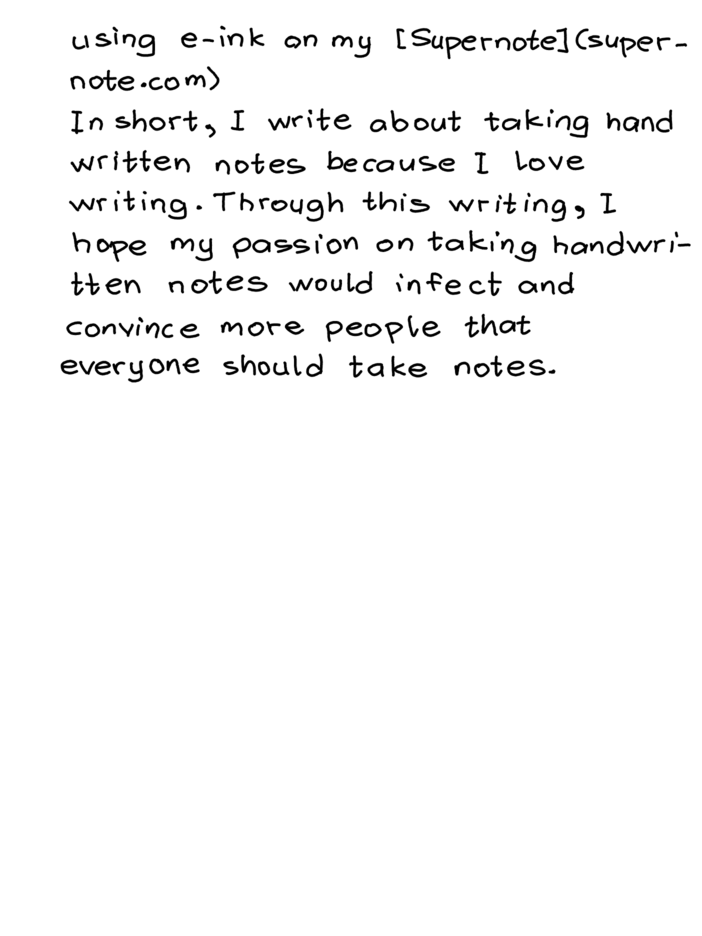 using e-ink on my [Supernote](super-
note.com)
In short, I write about taking hand
written notes because I love
writing. Through this writing, I
hope my passion on taking handwri-
tten notes would infect and
convince more people that
everyone should take notes.